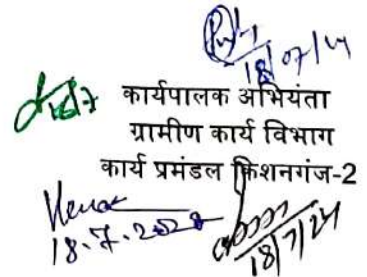 18/07/24
18/7
कार्यपालक अभियंता
ग्रामीण कार्य विभाग
कार्य प्रमंडल किशनगंज-2
18.7.2024
18/7/24